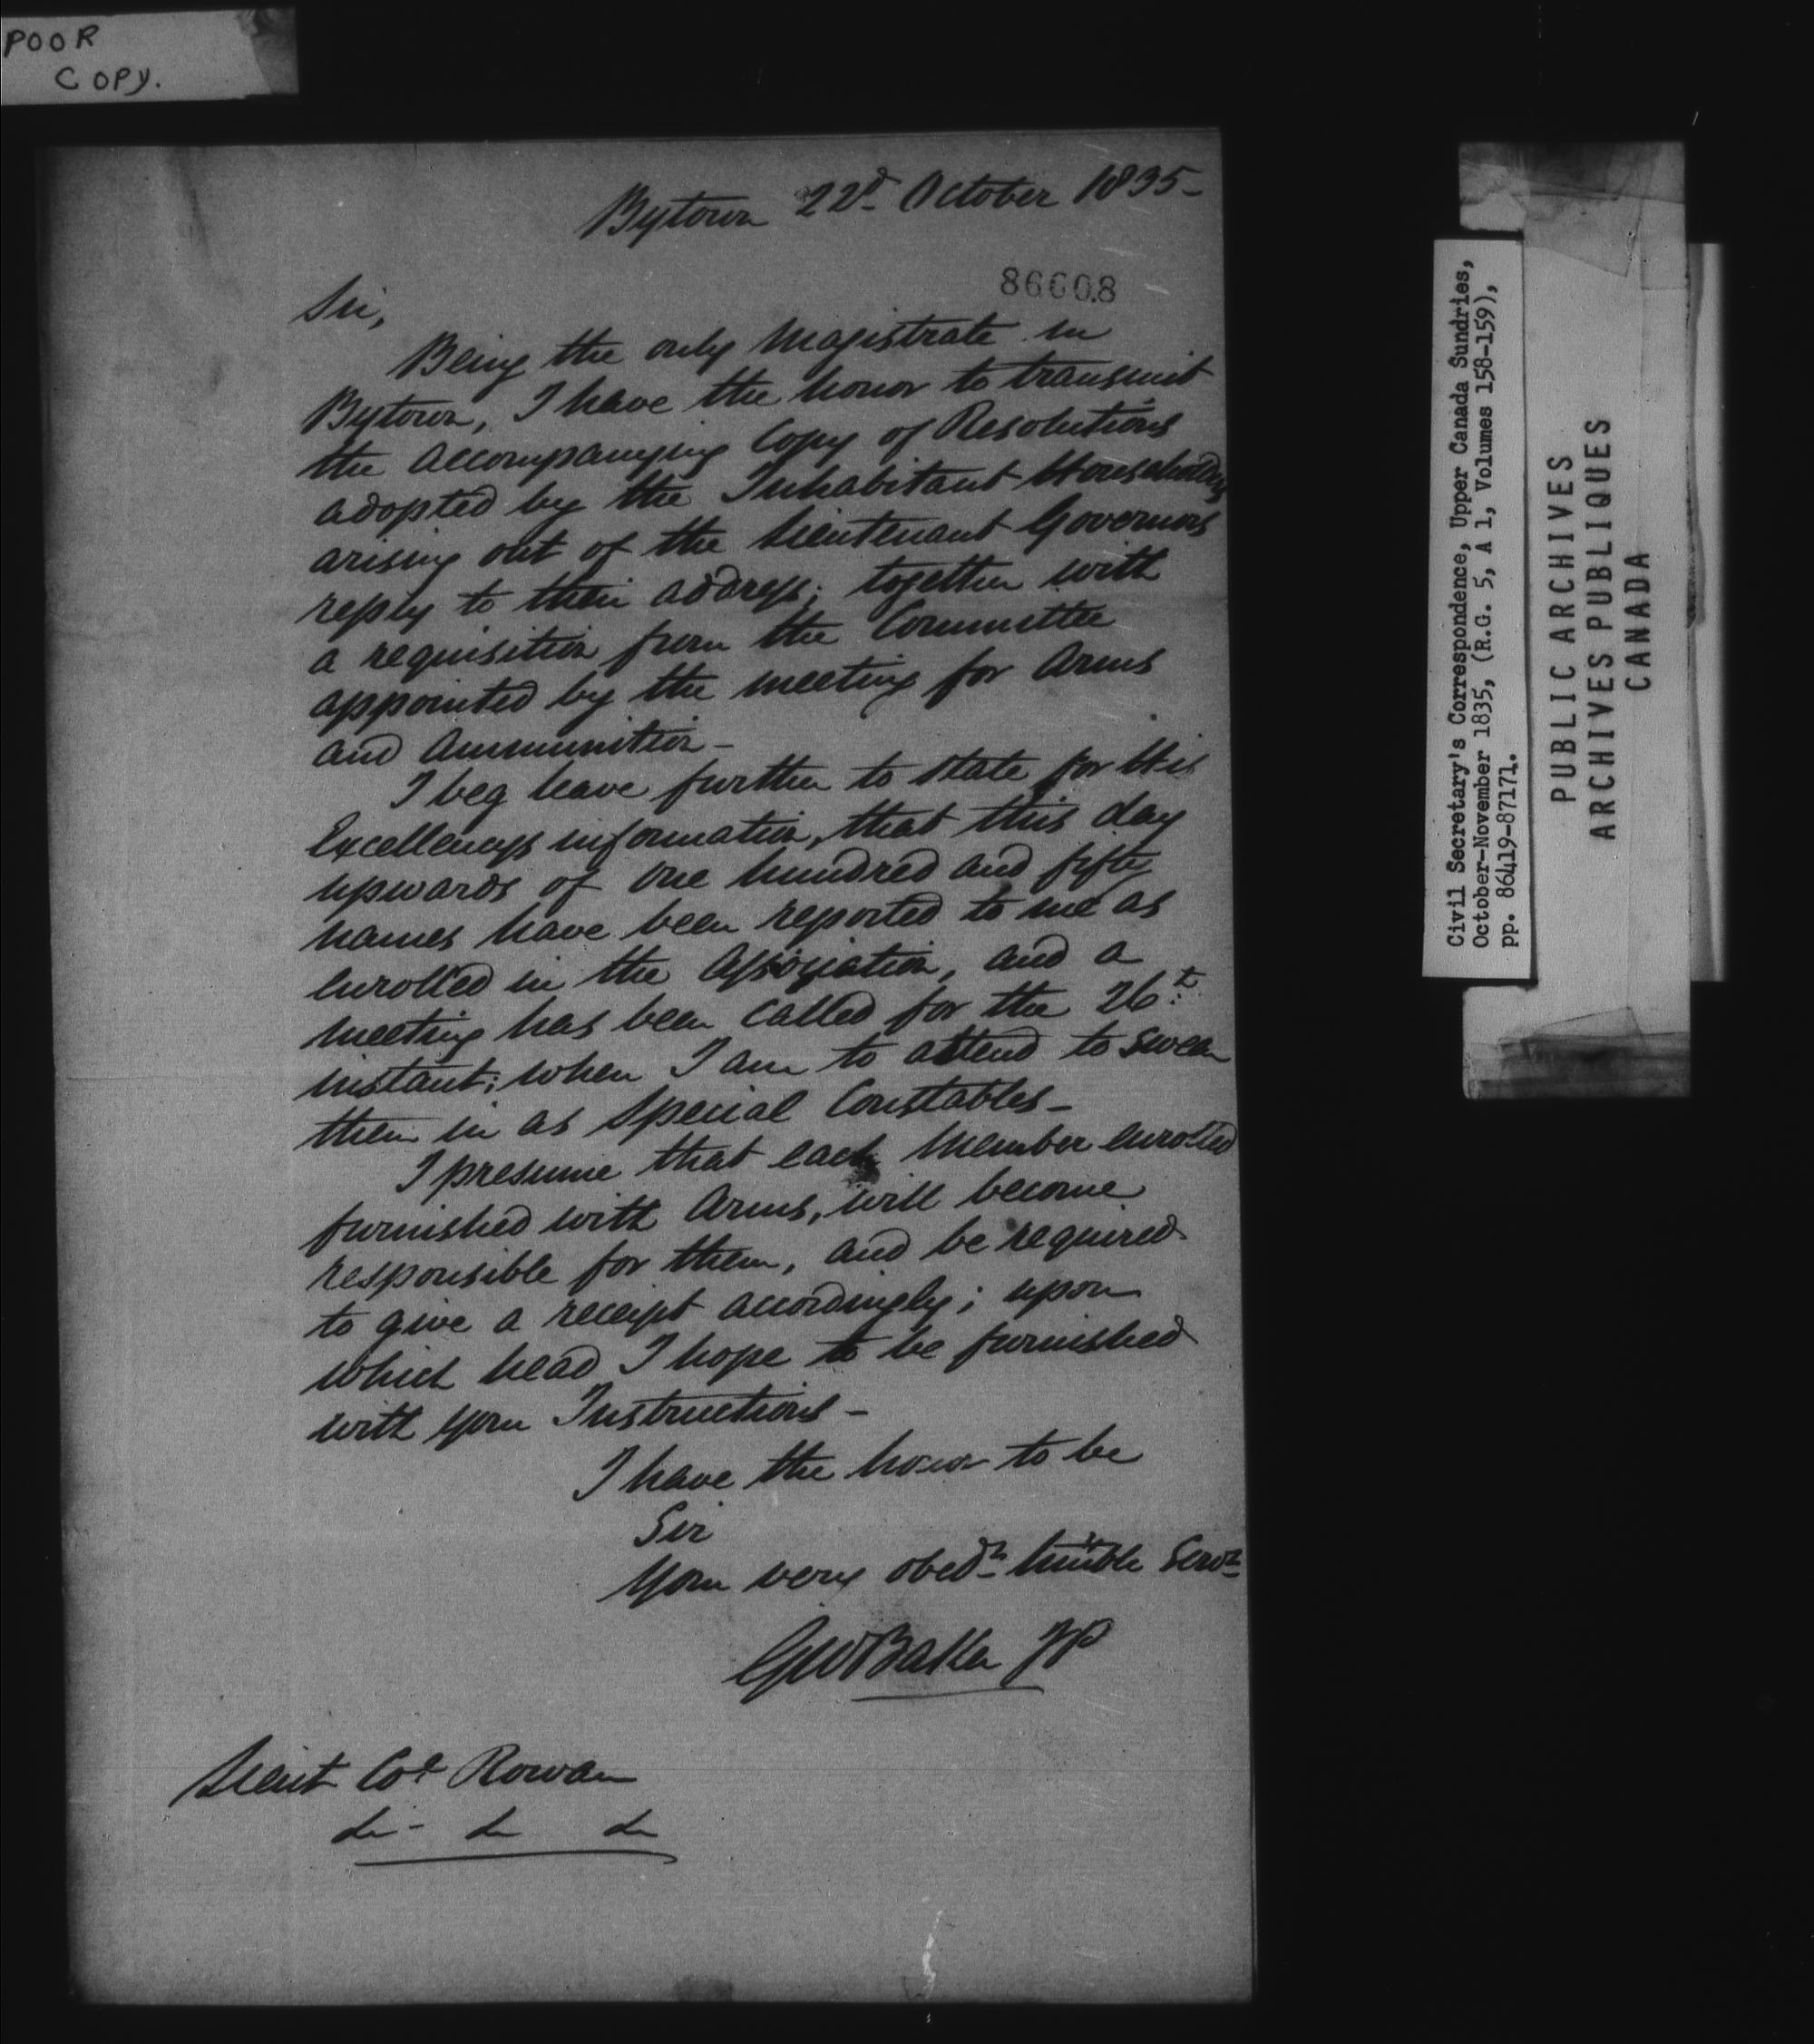 POOR
COPY.
Bytown 22d October 1835-
86608
Sir,
Being the only Magistrate in
Bytown, I have the honor to transmit
the accompanying Copy of Resolutions
adopted by the Inhabitant Householders
arising out of the Lieutenant Governors
reply to their address; together with
a requisition from the Committee
appointed by the meeting for Arms
and Ammunition-
I beg leave further to state for His
Excellencys information, that this day
upwards of one hundred and fifty
names have been reported to me as
enrolled in the Association, and a
meeting has been called for the 26th
instant; when I am to attend to swear
them in as Special Constables-
I presume that each Member enrolled
furnished with Arms, will become
responsible for them, and be required
to give a receipt accordingly; upon
which head I hope to be furnished
with your Instructions-
I have the honor to be
Sir
Your very obedt humble Servt
GW Baker JP
Lieut Col Rowan
&c- &c &c
Civil Secretary's Correspondence, Upper Canada Sundries,
October-November 1835, (R.G. 5, A 1, Volumes 158-159),
pp. 86419-87171.
PUBLIC ARCHIVES
ARCHIVES PUBLIQUES
CANADA